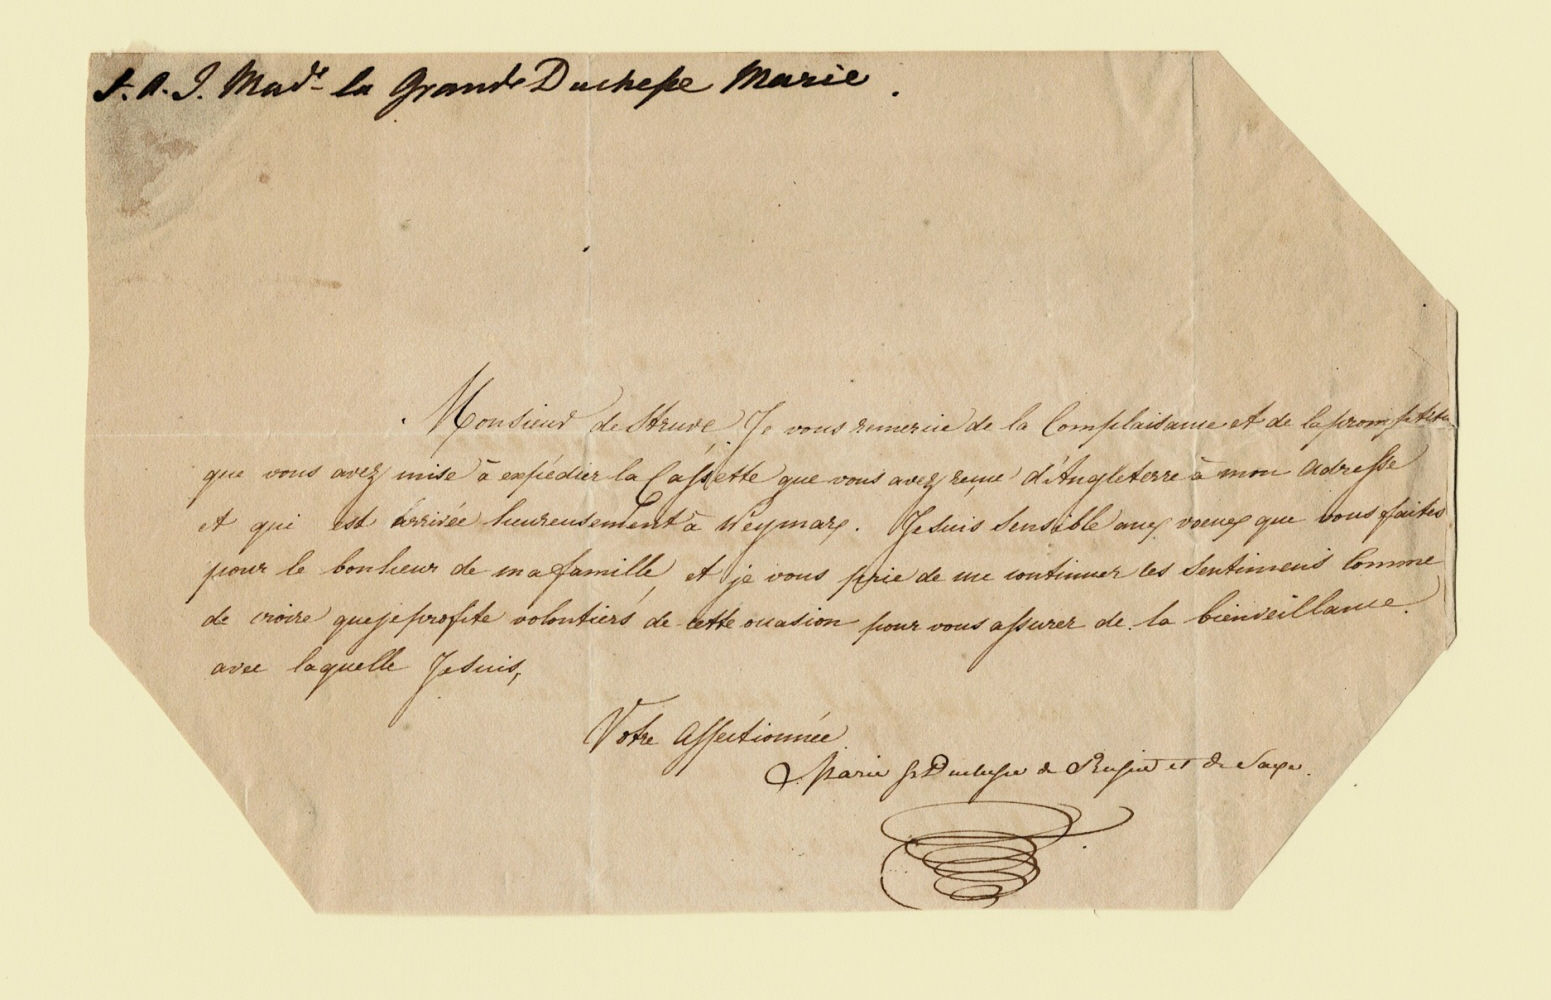 S. A. I. Mad.e la Grande Duchesse Marie.
Monsieur de Struve, Je vous remercie de la Complaisance et de la promptitu
que vous avez mise à expédier la Cassette que vous avez reçue d'Angleterre à mon adresse
et qui est arrivée heureusement à Weymar. Je suis sensible aux voeux que vous faites
pour le bonheur de ma famille, et je vous prie de me continuer ces sentimens comme
de croire que je profite volontiers de cette occasion pour vous assurer de la bienveillance.
avec laquelle Je suis,
Votre affectionnée
Marie G Duchesse de Russie et de Saxe.